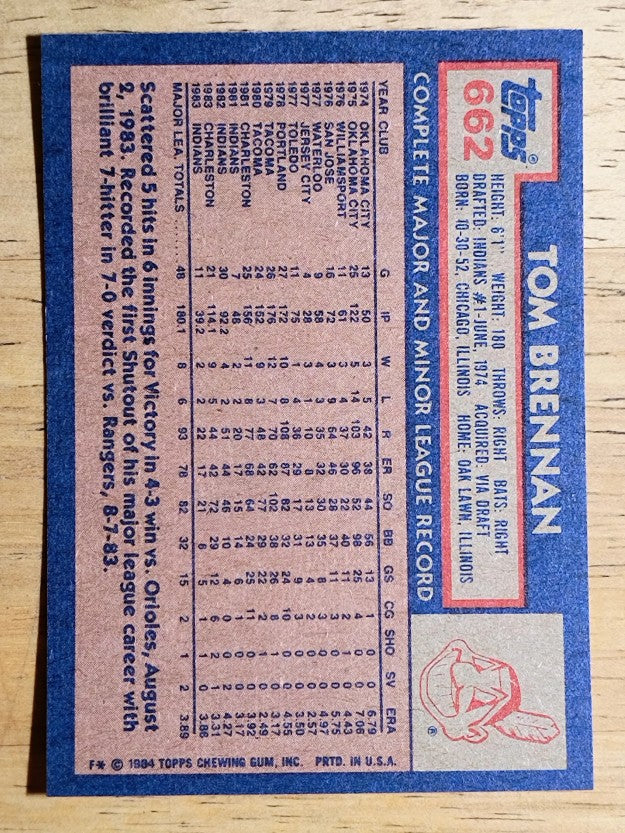 topps®
662
TOM BRENNAN
HEIGHT: 6'1" WEIGHT: 180 THROWS: RIGHT BATS: RIGHT
DRAFTED: INDIANS #1-JUNE, 1974 ACQUIRED: VIA DRAFT
BORN: 10-30-52, CHICAGO, ILLINOIS HOME: OAK LAWN, ILLINOIS
®
COMPLETE MAJOR AND MINOR LEAGUE RECORD
YEAR CLUB G IP W L R ER SO BB GS CG SHO SV ERA
1974 OKLAHOMA CITY 13 50 3 5 42 38 44 56 13 1 0 0 6.79
1975 OKLAHOMA CITY 25 122 5 14 103 96 52 98 25 4 0 0 7.06
1976 WILLIAMSPORT 11 61 3 4 30 11 4.43
1976 SAN JOSE 16 72 3 9 64 46 30 37 11 2 0 0 5.75
1977 WATERLOO 9 58 4 3 35 32 30 35 8 3 0 0 4.97
1977 JERSEY CITY 4 28 1 3 10 8 13 8 3 2 2.57
1977 TOLEDO 11 75 4 4 36 29 17 31 9 4 0 0 3.50
1978 PORTLAND 27 172 10 8 108 87 82 32 24 10 0 0 4.55
1979 TACOMA 26 176 12 7 70 62 102 38 26 8 1 0 3.17
1980 TACOMA 24 152 9 3 48 42 77 29 22 2.49
1981 CHARLESTON 25 156 11 8 77 68 64 22 24 11 3.92
1981 INDIANS 7 48 2 2 20 17 15 14 6 1 0 0 3.17
1982 INDIANS 30 92.2 4 2 51 44 46 10 4 0 0 2 4.27
1983 CHARLESTON 21 114.1 9 4 45 42 72 29 15 6 2 1 3.31
1983 INDIANS 11 39.2 2 2 22 17 21 8 5 1 1 0 3.86
MAJOR LEA. TOTALS ...... 48 180.1 8 6 93 78 82 32 15 2 1 2 3.89
Scattered 5 hits in 6 innings for Victory in 4-3 win vs. Orioles, August
2, 1983. Recorded the first Shutout of his major league career with
brilliant 7-hitter in 7-0 verdict vs. Rangers, 8-7-83.
F* © 1984 TOPPS CHEWING GUM, INC. PRTD. IN U.S.A.